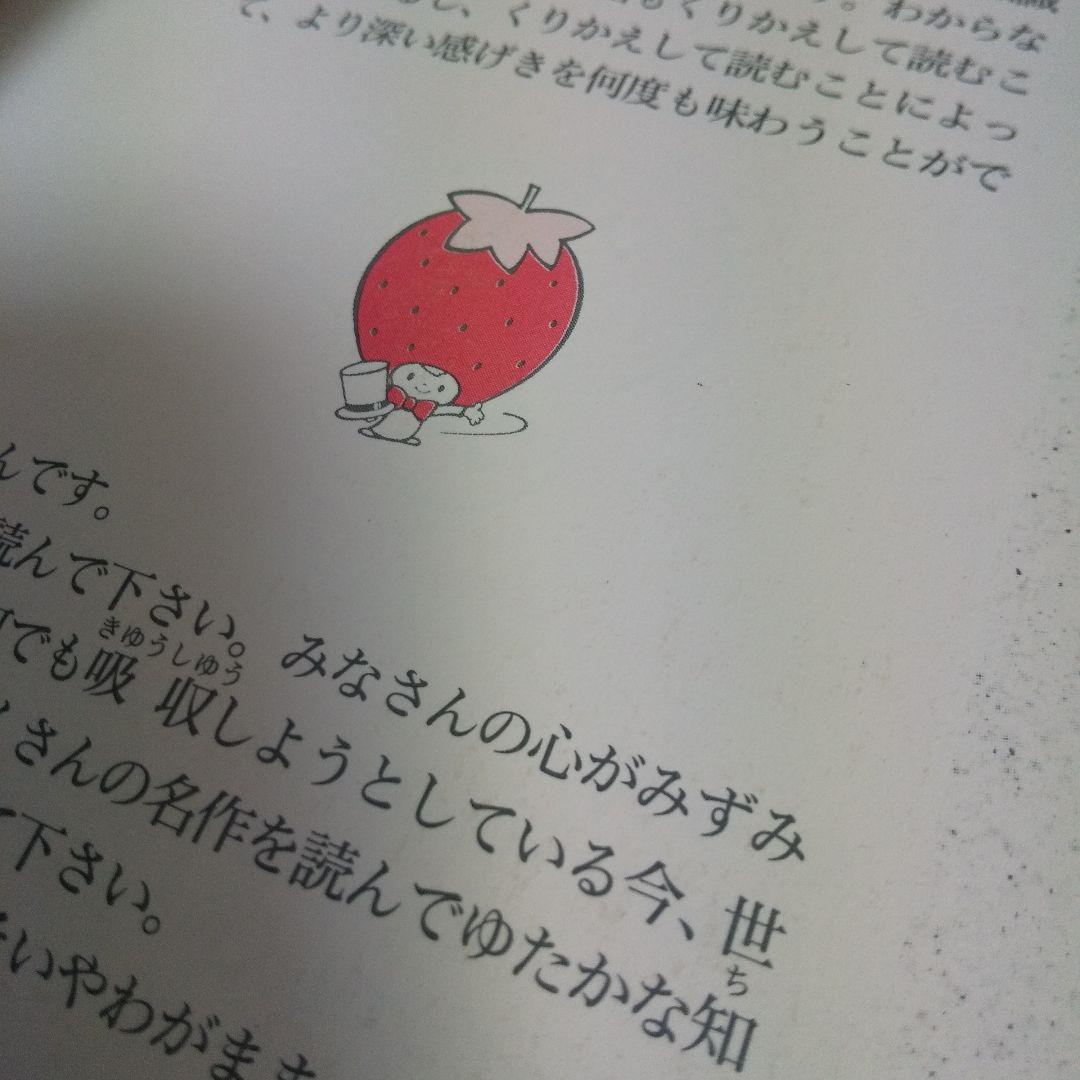 。わからな
もくりかえして読むこ
し、くりかえして読むことによっ
て、より深い感げきを何度も味わうことがで
んです。
読んで下さい。みなさんの心がみずみ
でも吸収しようとしている今、世
きゆうしゆう
さんの名作を読んでゆたかな知
ち
下さい。
いやわがまま